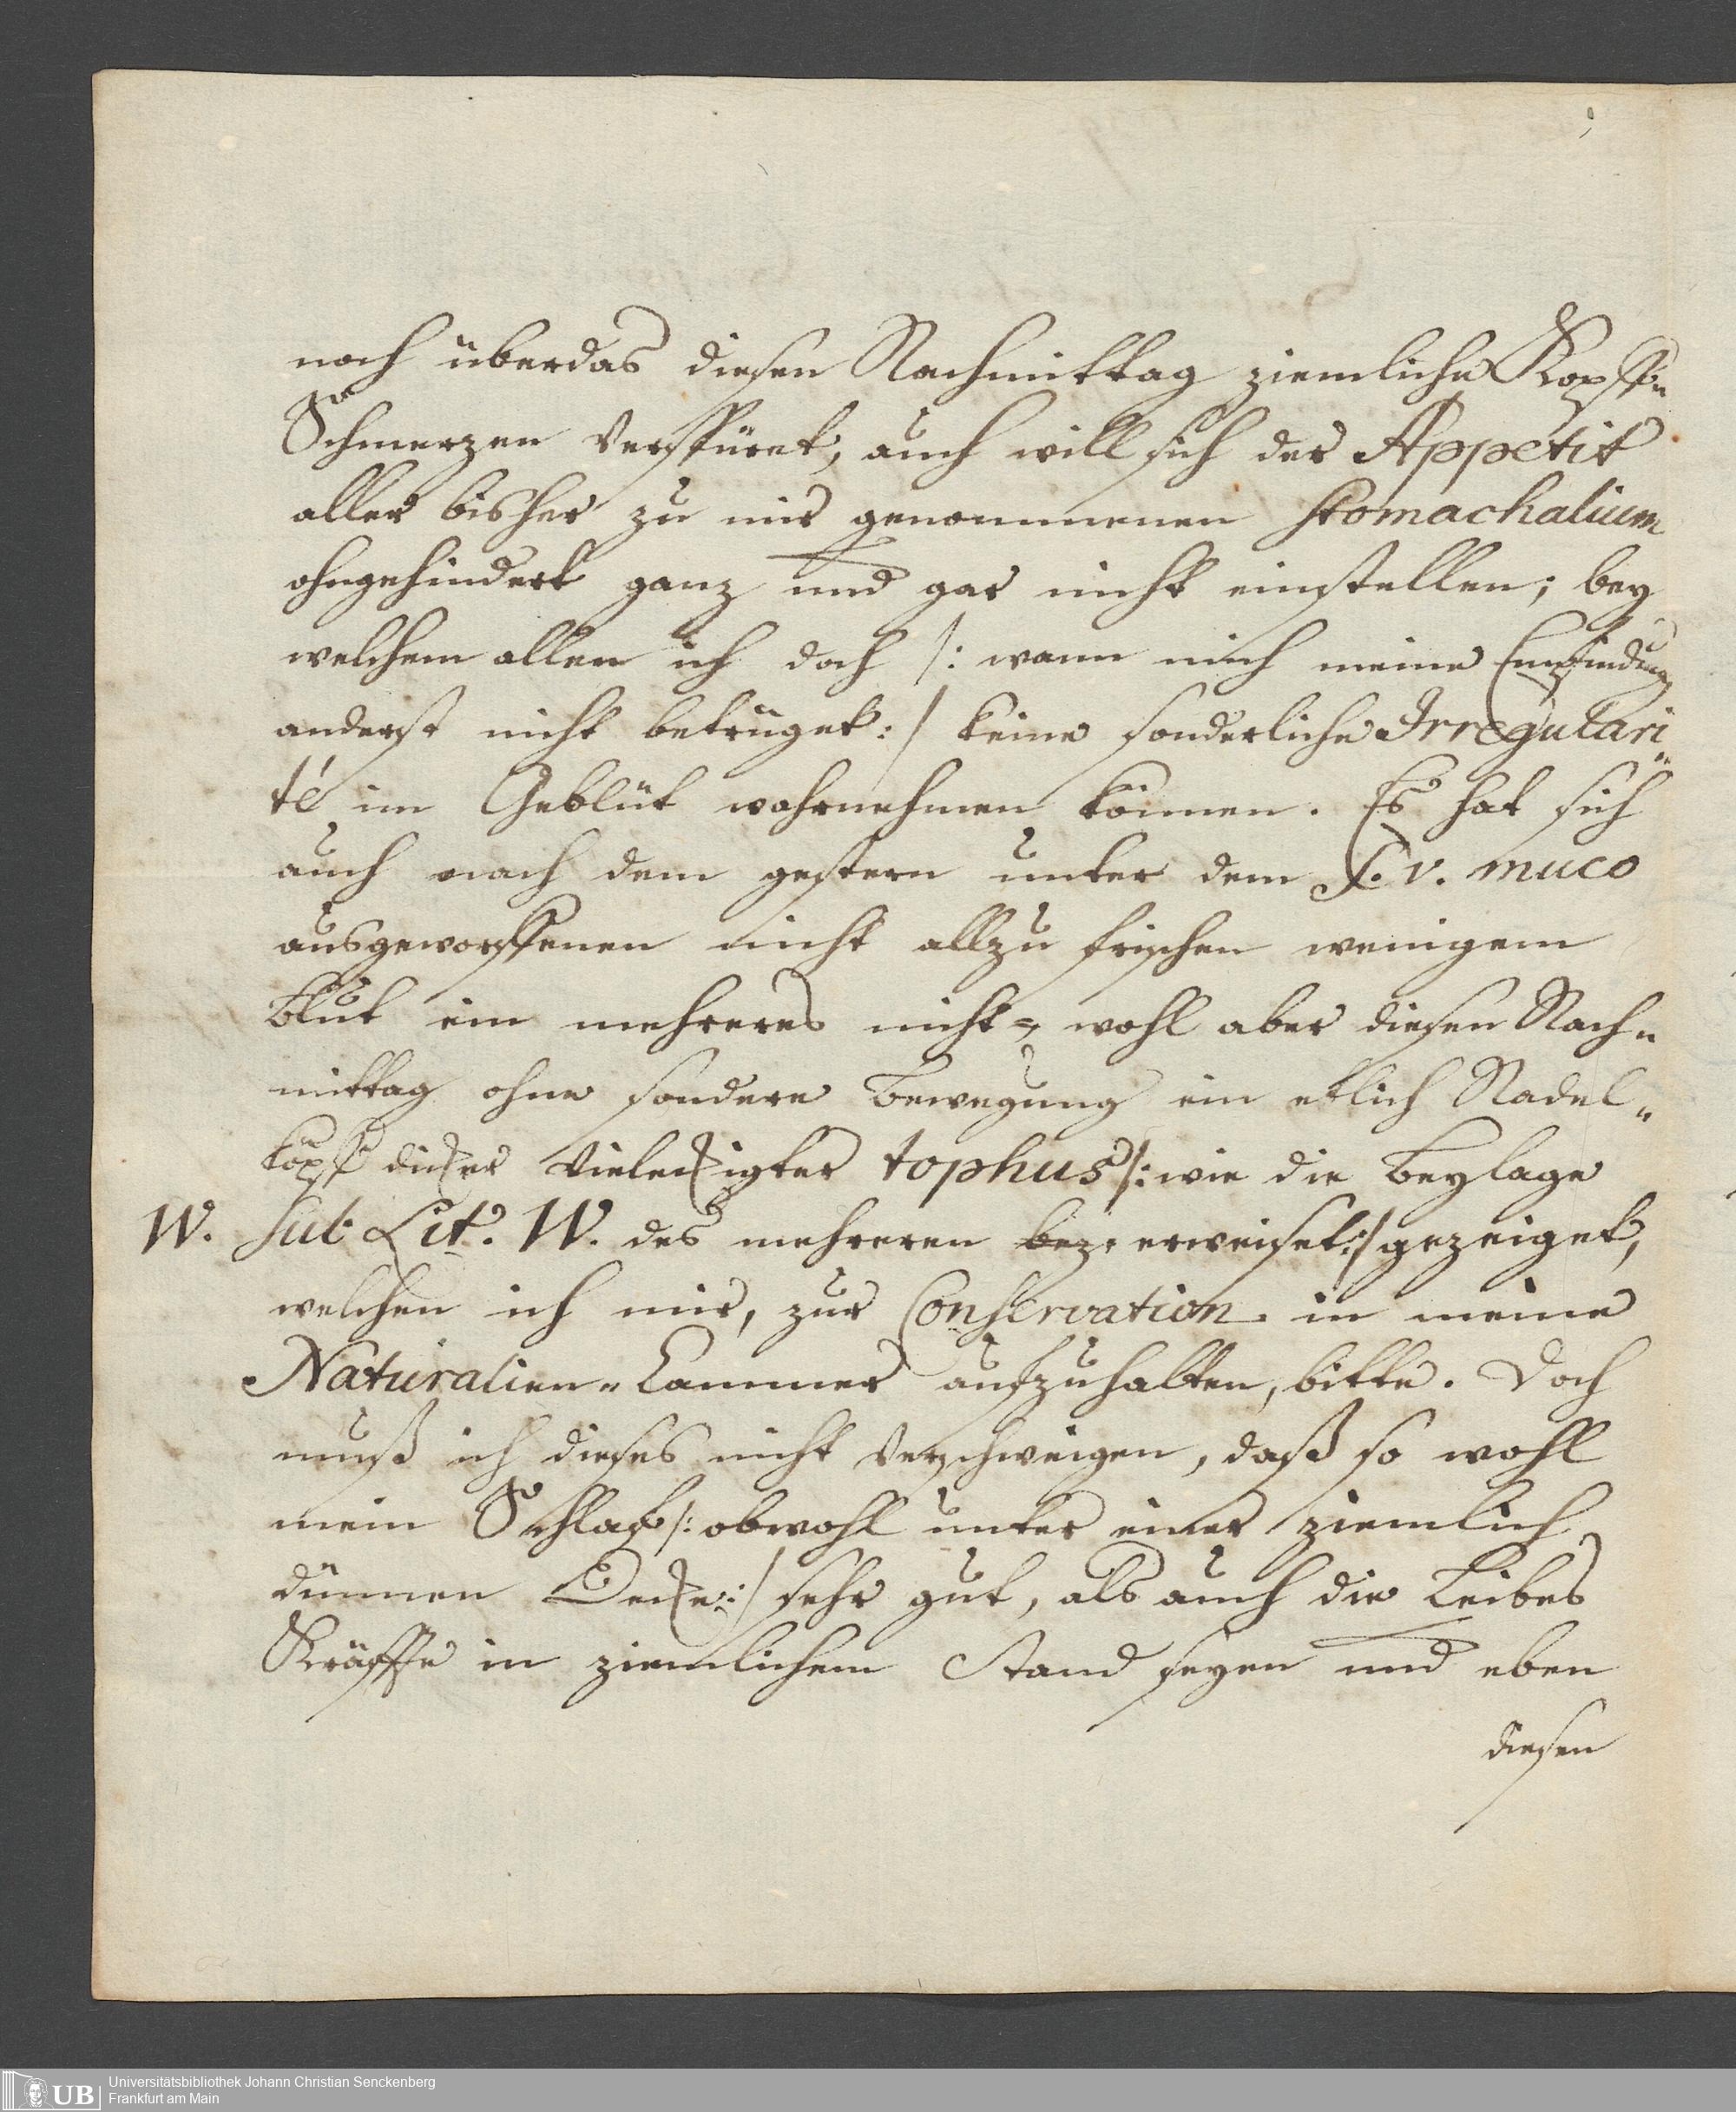 noch überdas diesen Nachmittag ziemliche Kopff„
Schmerzen verspüret, auch will sich der Appetit
aller bisher zu mir genommenen stomachalium
ohngehindert ganz und gar nicht einstellen; bey
welchem allen ich doch /: wann mich meine Empfindung
anderst nicht betrüget :/ keine sonderliche Irregulari„
té im Geblüt wahrnehmen können. Es hat sich
auch nach dem gestern unter dem s. v. muco
ausgeworffenen nicht allzu frischen wenigem
Blut ein mehreres nicht, wohl aber diesen Nach„
mittag ohne sondere Bewegung ein etlich Nadel„
köpf dicker vieleckigter tophus /: wie die Beylage
W. sub Lit. W. des mehreren bez. erweiset :/ gezeiget,
welchen ich mir, zur Conservation in meine
Naturalien„Cammer aufzuhalten, bitte. Doch
muß ich dieses nicht verschweigen, daß so wohl
mein Schlaf /: obwohl unter einer ziemlich
dünnen Decke :/ sehr gut, als auch die Leibes
Kräffte in ziemlichem Stand seyen und eben
diesen
Universitätsbibliothek Johann Christian Senckenberg
Frankfurt am Main
UB